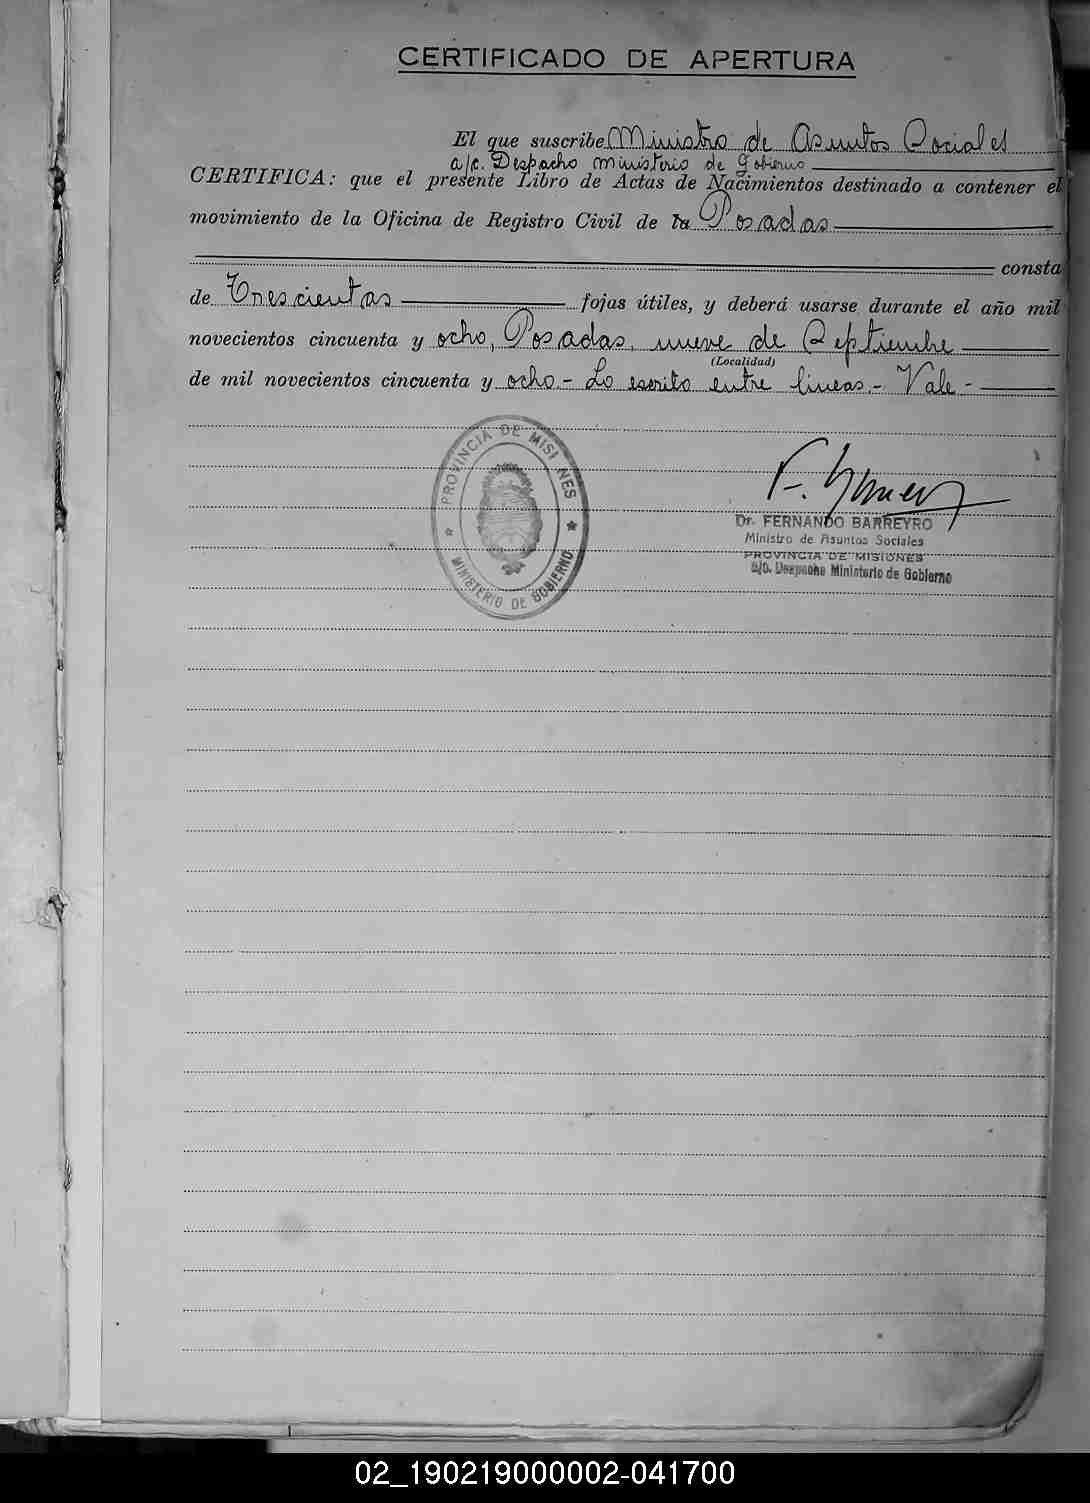 CERTIFICADO DE APERTURA
El que suscribe Ministro de Asuntos Sociales
a/c. Despacho Ministerio de Gobierno
CERTIFICA: que el presente Libro de Actas de Nacimientos destinado a contener el
movimiento de la Oficina de Registro Civil de la Posadas
consta
de Trescientas fojas útiles, y deberá usarse durante el año mil
novecientos cincuenta y ocho, Posadas, nueve de Septiembre
(Localidad)
de mil novecientos cincuenta y ocho - Lo escrito entre lineas - Vale -
PROVINCIA DE MISIONES
MINISTERIO DE GOBIERNO
Dr. FERNANDO BARREYRO
Ministro de Asuntos Sociales
PROVINCIA DE MISIONES
a/c. Despacho Ministerio de Gobierno
02_190219000002-041700